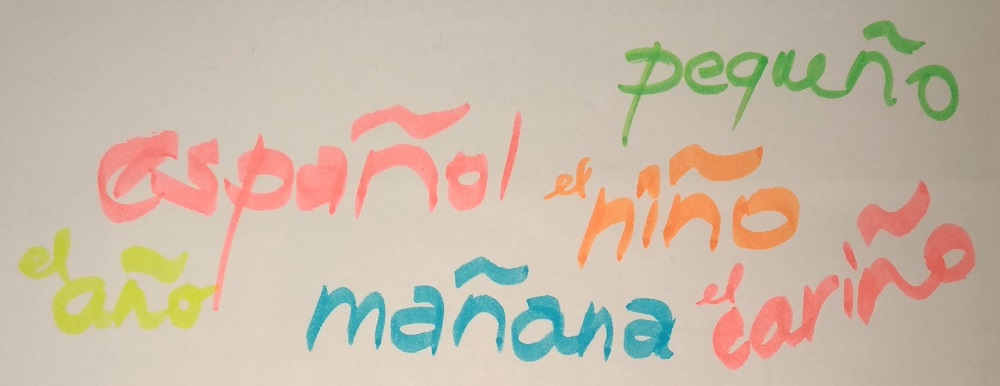 pequeño
español
el niño
el año
mañana
el cariño